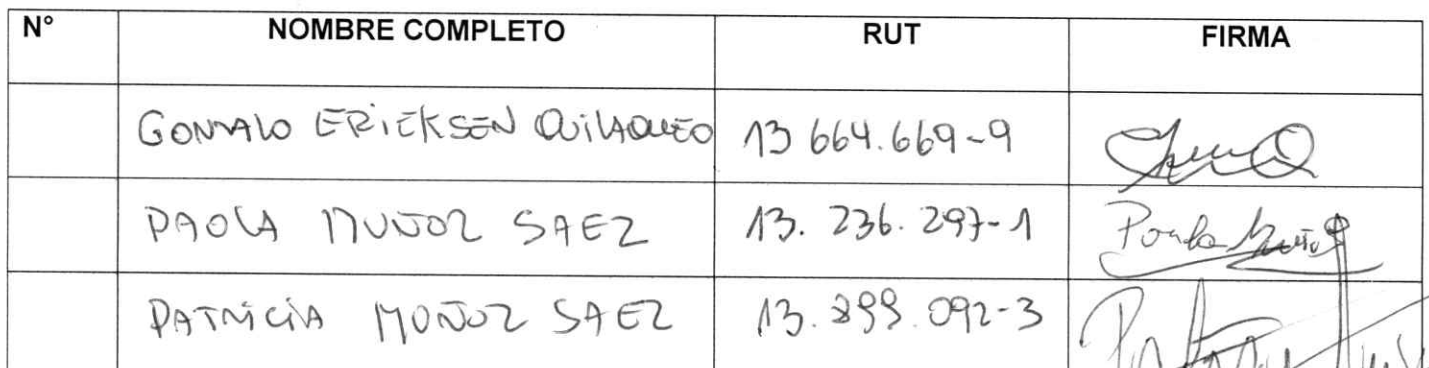 N° NOMBRE COMPLETO RUT FIRMA
GONZALO ERIEKSEN QUILAQUEO 13 664.669-9
PAOLA MUÑOZ SAEZ 13. 236. 297-1 Paola Muñoz
PATRICIA MUÑOZ SAEZ 13. 899. 092-3